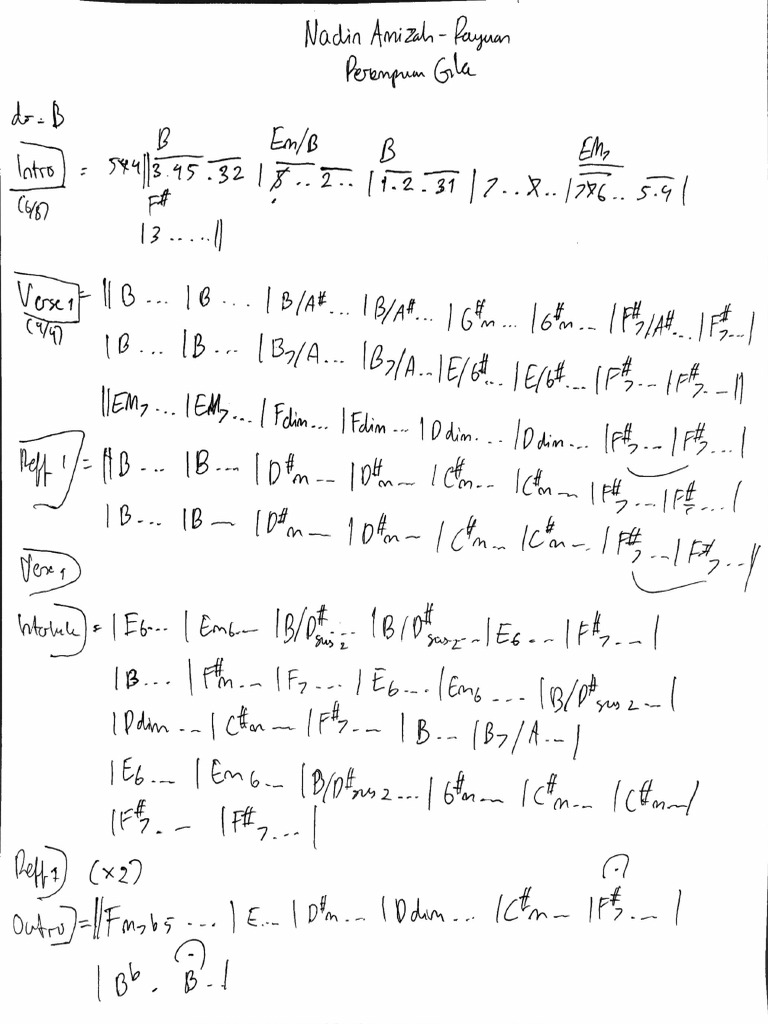 Nadin Amizah - Rayuan
Perempuan Gila
do = B
B Em/B B EM7
Intro = 5 4 || 3.45 .32 | .. 2.. | 1.2.31 | 7.. .. | 6.. 5.4 |
(6/8) F#
| 3 ..... ||
Verse 1 = || B ... | B ... | B/A# ... | B/A# ... | G#m ... | G#m ... | F#7/A# ... | F#7 ... |
(4/4)
| B ... | B ... | B7/A ... | B7/A ... | E/G# ... | E/G# ... | F#7 ... | F#7 ... ||
|| EM7 ... | EM7 ... | Fdim ... | Fdim ... | Ddim ... | Ddim ... | F#7 ... | F#7 ... |
Reff 1 = || B ... | B ... | D#m ... | D#m ... | C#m ... | C#m ... | F#7 ... | F#7 ... |
| B ... | B ... | D#m ... | D#m ... | C#m ... | C#m ... | F#7 ... | F#7 ... ||
Verse 1
= | E6 ... | Em6 ... | B/D#sus2 ... | B/D#sus2 ... | E6 ... | F#7 ... |
| B ... | F#m ... | F7 ... | E6 ... | Em6 ... | B/D#sus2 ... |
| Ddim ... | C#m ... | F#7 ... | B ... | B7/A ... |
| E6 ... | Em6 ... | B/D#sus2 ... | G#m ... | C#m ... | C#m ... |
| F#7 ... | F#7 ... |
Reff 1 (x2)
Outro = || Fm7b5 ... | E ... | D#m ... | Ddim ... | C#m ... | F#7 ... |
| Bb . B . |